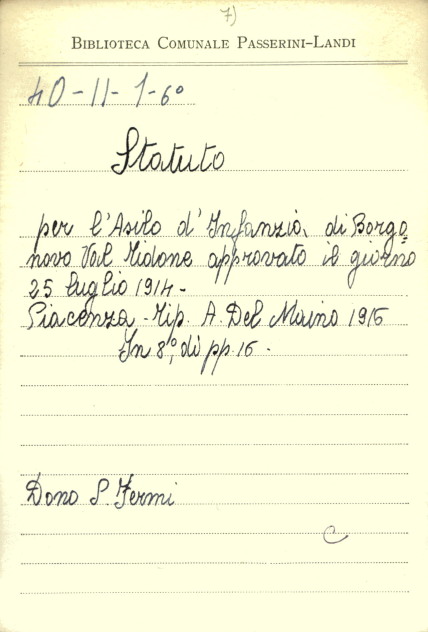 7)
BIBLIOTECA COMUNALE PASSERINI-LANDI
40-II-1-6°
Statuto
per l'Asilo d'Infanzia, di Borgo=
novo Val Tidone approvato il giorno
25 luglio 1914-
Piacenza-Tip. A. Del Maino 1915
In 8°, di pp. 15.
Dono S. Fermi
C